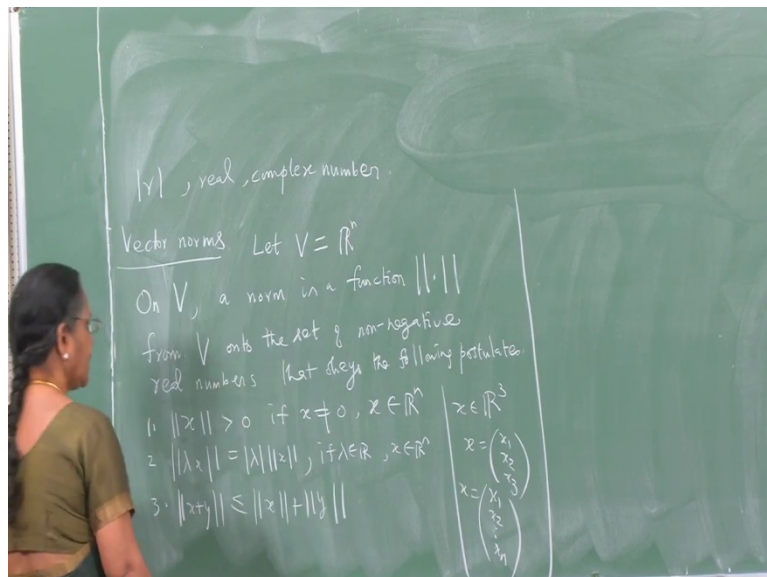 |r| , real , complex number .
Vector norms Let V = ℝⁿ
On V, a norm is a function ||·||
from V onto the set of non-negative
real numbers that obeys the following postulates.
1. ||x|| > 0 if x ≠ 0, x ∈ ℝⁿ
2. ||λx|| = |λ| ||x|| , if λ∈ℝ , x∈ℝⁿ
3. ||x+y|| ≤ ||x|| + ||y||
x ∈ ℝ³
x = (x₁
x₂
x₃)
x = (x₁
x₂
⋮
xₙ)